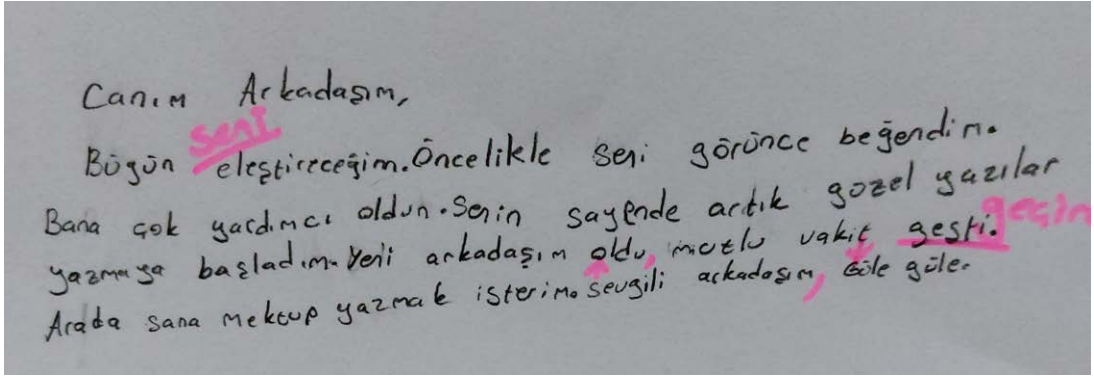 Canım Arkadaşım,
senI
Bügün eleştireceğim. Öncelikle seni görünce beğendim.
Bana çok yardımcı oldun. Senin sayende artık gözel yazılar
geçin
yazmaya başladım. Yeni arkadaşım oldu, mutlu vakit geşti.
Arada sana mektup yazmak isterim. sevgili arkadaşım, Göle göle.